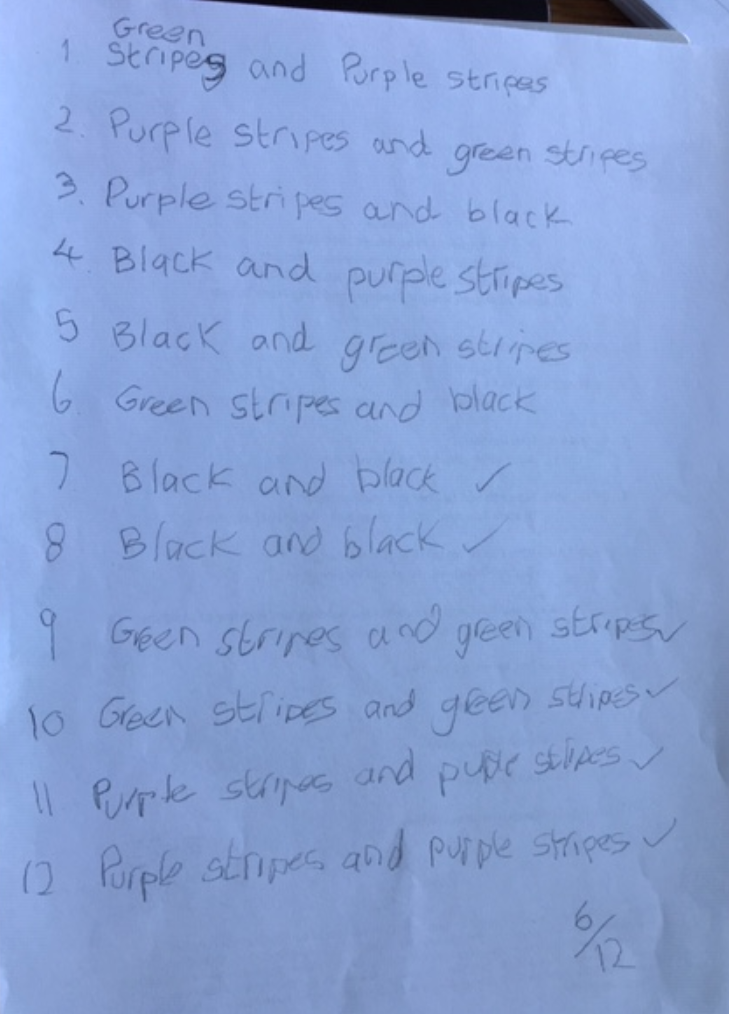 Green
1 Stripes and Purple stripes
2. Purple stripes and green stripes
3. Purple stripes and black
4. Black and purple stripes
5 Black and green stripes
6. Green stripes and black
7 Black and black ✓
8 Black and black ✓
9 Green stripes and green stripes ✓
10 Green stripes and green stripes ✓
11 Purple stripes and purple stripes ✓
12 Purple stripes and purple stripes ✓
6/12